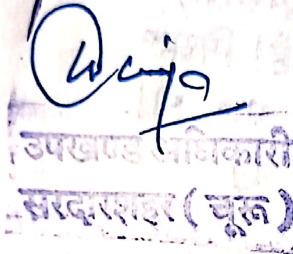 उपखण्ड अधिकारी
सरदारशहर (चूरू)